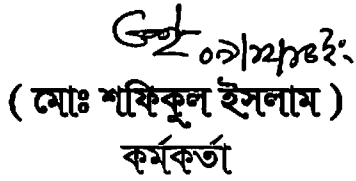 ( মোঃ শফিকুল ইসলাম )
কর্মকর্তা